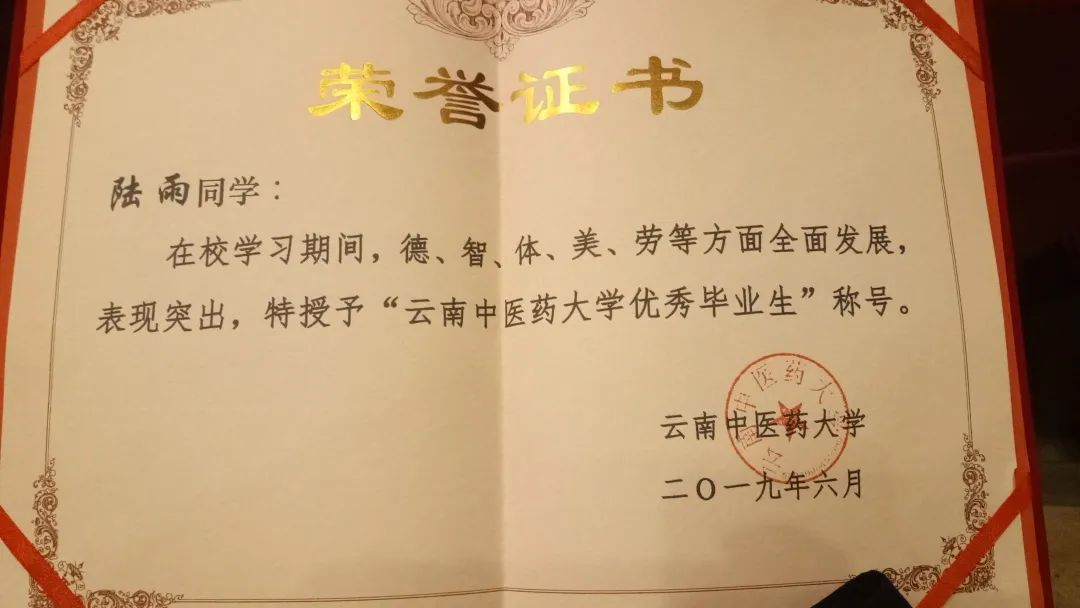 荣誉证书
陆雨同学：
在校学习期间，德、智、体、美、劳等方面全面发展，
表现突出，特授予“云南中医药大学优秀毕业生”称号。
云南中医药大学
云南中医药大学
二〇一九年六月